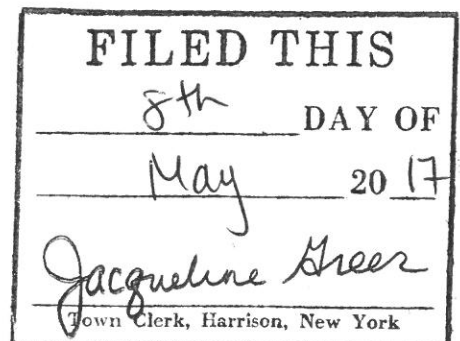 FILED THIS
8th DAY OF
May 20 17
Jacqueline Greer
Town Clerk, Harrison, New York